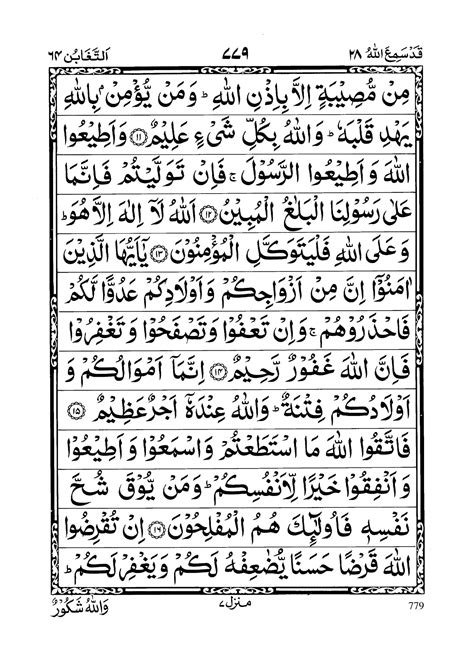 قَدْ سَمِعَ اللّٰهُ ٢٨
٧٧٩
اَلتَّغَابُن ٦٤
مِنْ مُّصِيْبَةٍ اِلَّا بِاِذْنِ اللّٰهِ ؕ وَمَنْ يُّؤْمِنْۢ بِاللّٰهِ
يَهْدِ قَلْبَهٗ ؕ وَاللّٰهُ بِكُلِّ شَىْءٍ عَلِيْمٌ ﴿١١﴾ وَاَطِيْعُوا
اللّٰهَ وَاَطِيْعُوا الرَّسُوْلَ ۚ فَاِنْ تَوَلَّيْتُمْ فَاِنَّمَا
عَلٰى رَسُوْلِنَا الْبَلٰغُ الْمُبِيْنُ ﴿١٢﴾ اَللّٰهُ لَاۤ اِلٰهَ اِلَّا هُوَ ؕ
وَعَلَى اللّٰهِ فَلْيَتَوَكَّلِ الْمُؤْمِنُوْنَ ﴿١٣﴾ يٰۤاَيُّهَا الَّذِيْنَ
اٰمَنُوْۤا اِنَّ مِنْ اَزْوَاجِكُمْ وَاَوْلَادِكُمْ عَدُوًّا لَّكُمْ
فَاحْذَرُوْهُمْ ۚ وَاِنْ تَعْفُوْا وَتَصْفَحُوْا وَتَغْفِرُوْا
فَاِنَّ اللّٰهَ غَفُوْرٌ رَّحِيْمٌ ﴿١٤﴾ اِنَّمَاۤ اَمْوَالُكُمْ وَ
اَوْلَادُكُمْ فِتْنَةٌ ؕ وَاللّٰهُ عِنْدَهٗۤ اَجْرٌ عَظِيْمٌ ﴿١٥﴾
فَاتَّقُوا اللّٰهَ مَا اسْتَطَعْتُمْ وَاسْمَعُوْا وَاَطِيْعُوْا
وَاَنْفِقُوْا خَيْرًا لِّاَنْفُسِكُمْ ؕ وَمَنْ يُّوْقَ شُحَّ
نَفْسِهٖ فَاُولٰٓئِكَ هُمُ الْمُفْلِحُوْنَ ﴿١٦﴾ اِنْ تُقْرِضُوا
اللّٰهَ قَرْضًا حَسَنًا يُّضٰعِفْهُ لَكُمْ وَيَغْفِرْ لَكُمْ ؕ
779
منزل ٧
وَاللّٰهُ شَكُوْرٌ